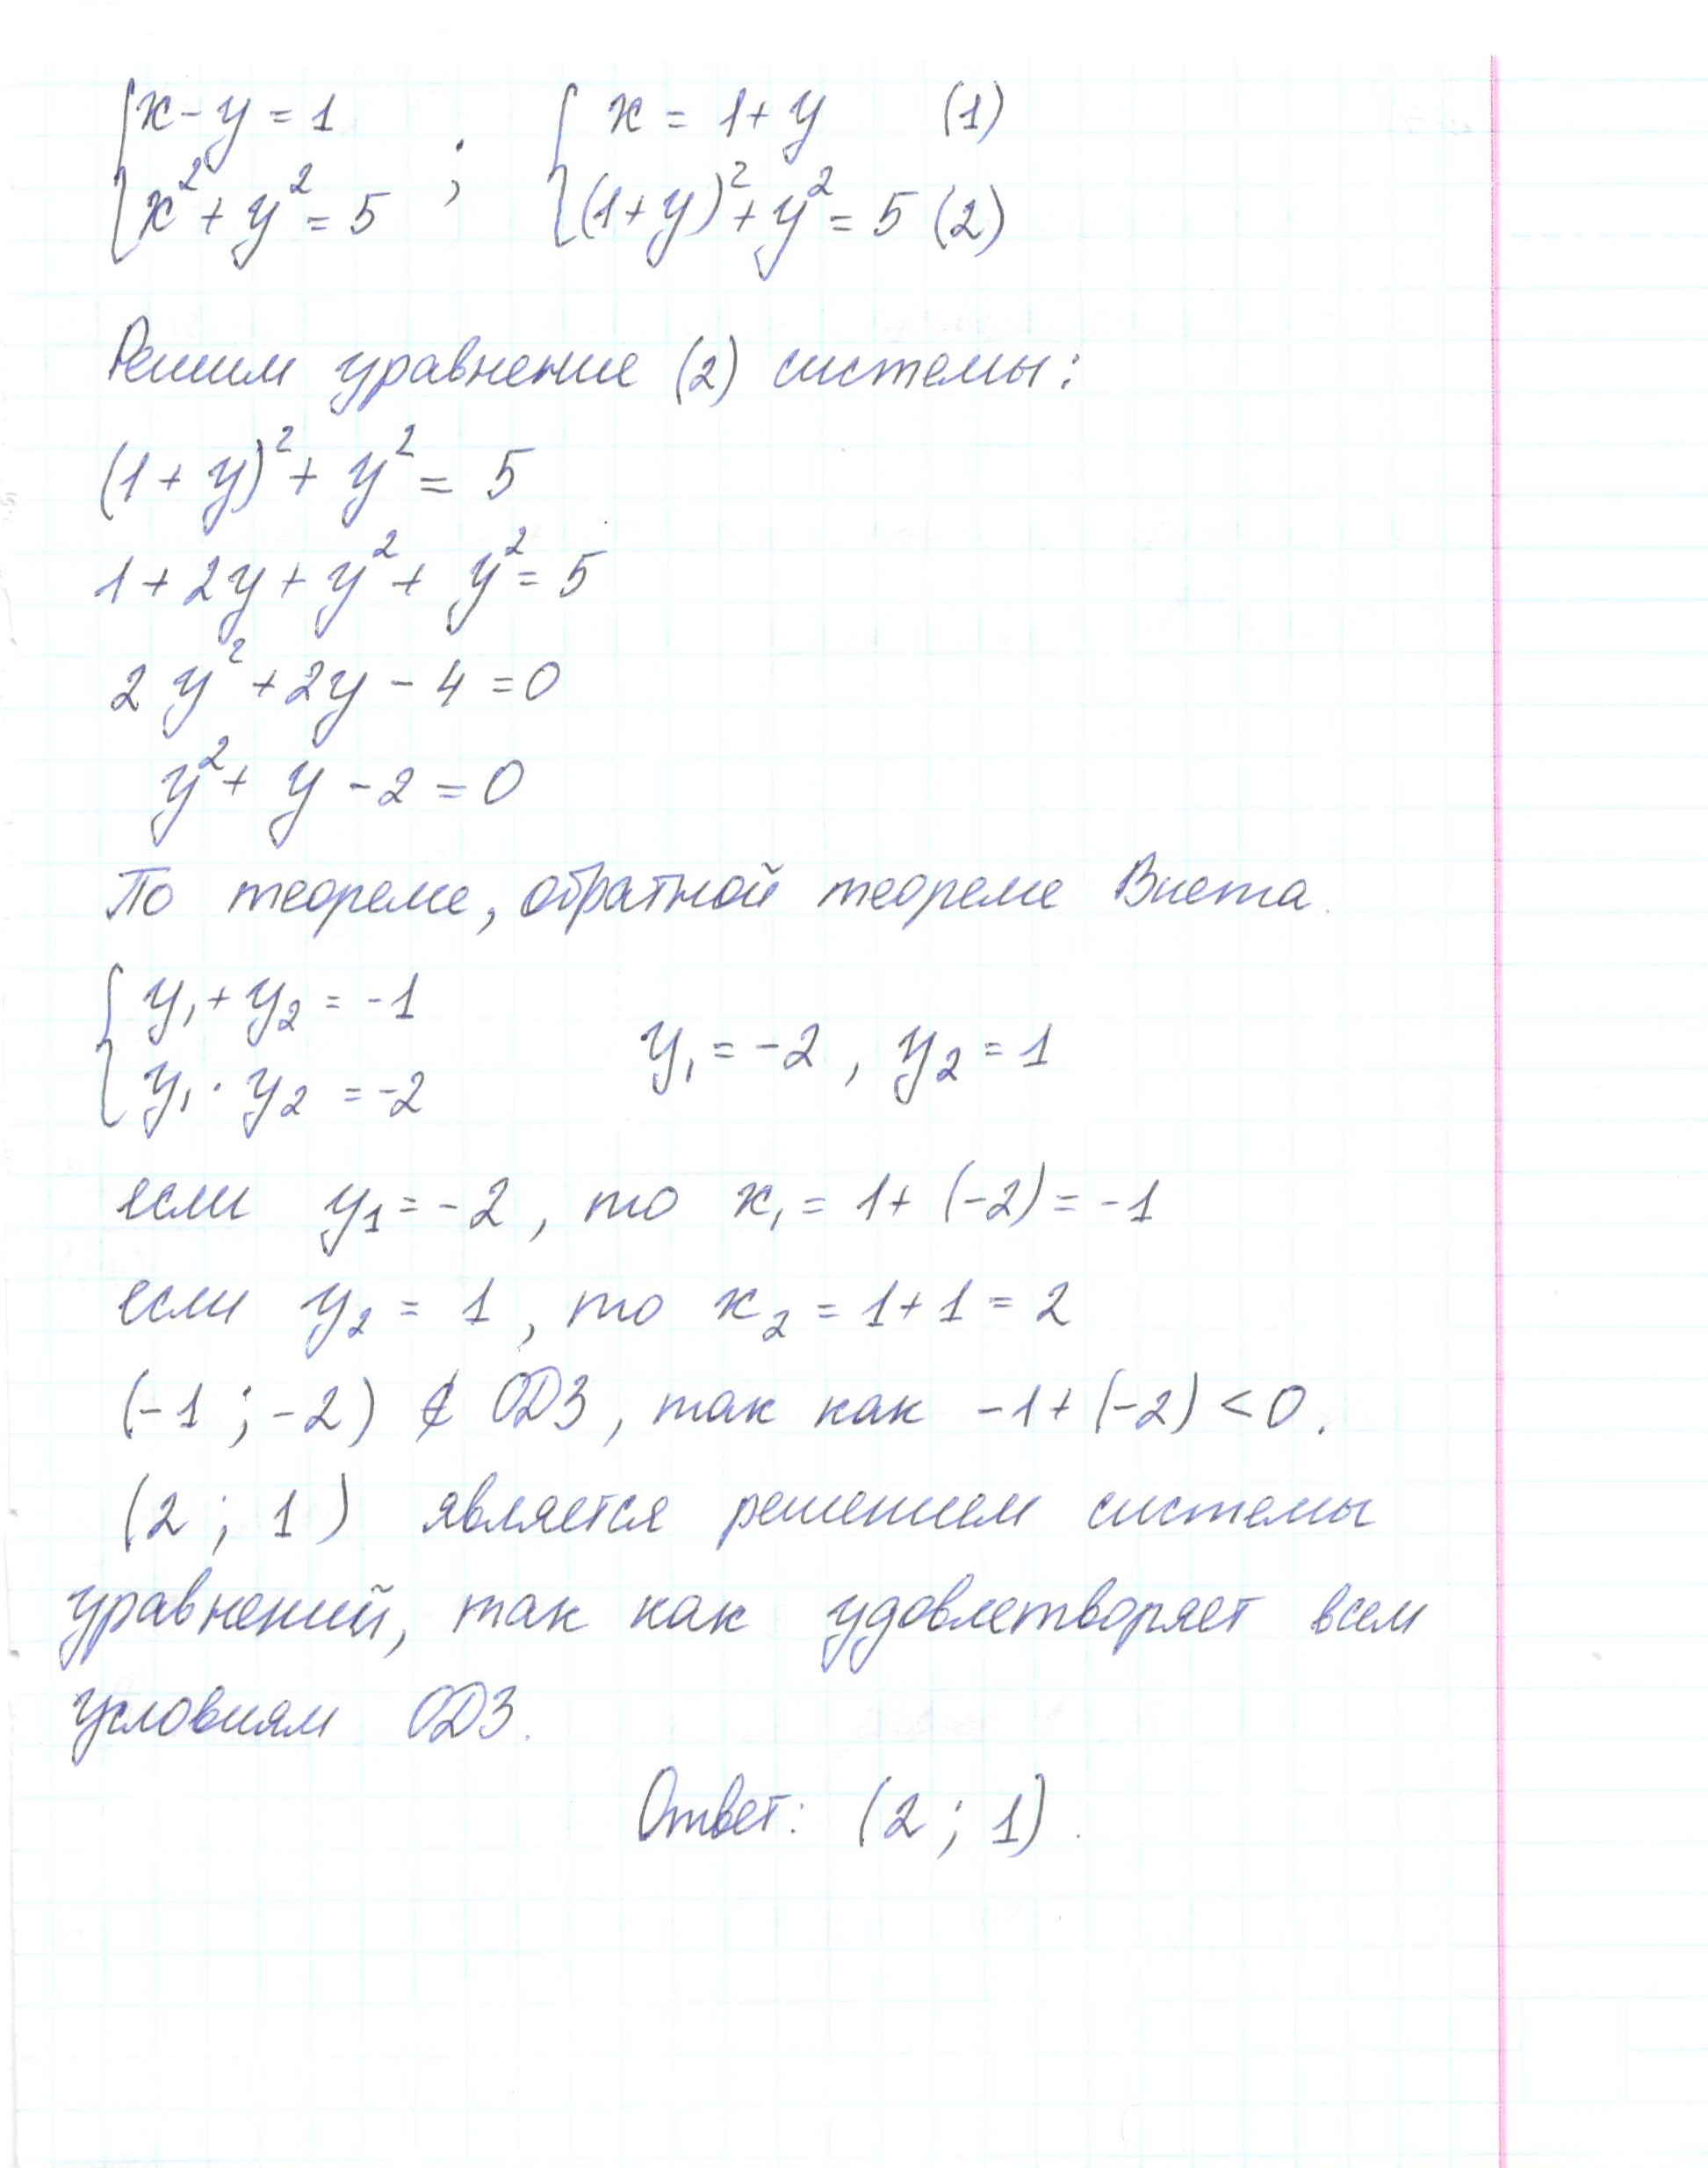 { x - y = 1 ; { x = 1 + y (1)
{ x² + y² = 5 { (1+y)² + y² = 5 (2)
Решим уравнение (2) системы:
(1 + y)² + y² = 5
1 + 2y + y² + y² = 5
2y² + 2y - 4 = 0
y² + y - 2 = 0
По теореме, обратной теореме Виета.
{ y₁ + y₂ = -1
{ y₁ · y₂ = -2
y₁ = -2, y₂ = 1
если y₁ = -2, то x₁ = 1 + (-2) = -1
если y₂ = 1, то x₂ = 1 + 1 = 2
(-1; -2) ∉ ОДЗ, так как -1 + (-2) < 0.
(2; 1) является решением системы
уравнений, так как удовлетворяет всем
условиям ОДЗ.
Ответ: (2; 1).